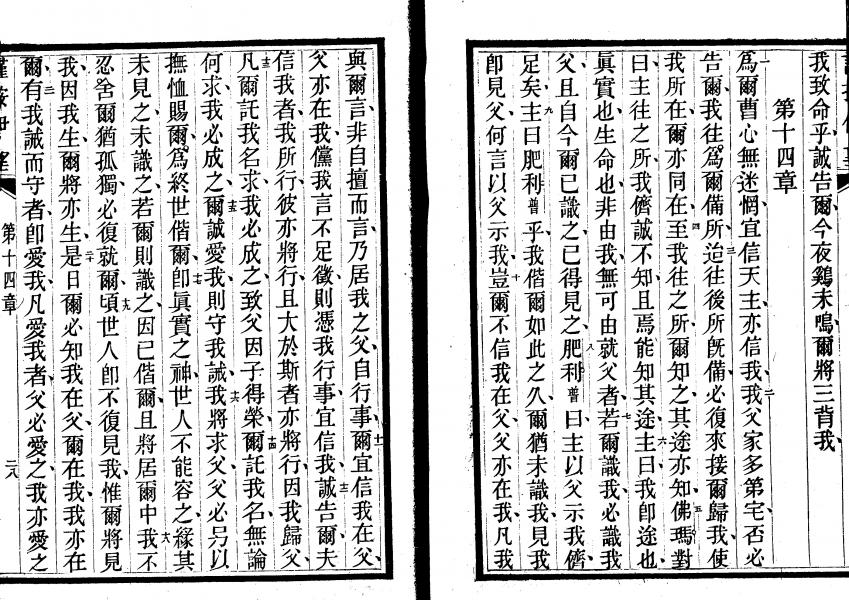 我致命乎誠告爾今夜鷄未鳴爾將三背我
第十四章
一爲爾曹心無迷惘宜信天主亦信我二我父家多第宅否必
告爾我往爲爾備所三迨往後所既備必復來接爾歸我使
我所在爾亦同在四至我往之所爾知之其途亦知五佛瑪對
曰主往之所我儕誠不知且焉能知其途六主曰我卽途也
眞實也生命也非由我無可由就父者七若爾識我必識我
父且自今爾已識之已得見之八肥利普曰主以父示我儕
足矣九主曰肥利普乎我偕爾如此之久爾猶未識我見我
卽見父何言以父示我十豈爾不信我在父父亦在我凡我
與爾言非自擅而言乃居我之父自行事十一爾宜信我在父
父亦在我儻我言不足徵則憑我行事宜信我十二誠告爾夫
信我者我所行彼亦將行且大於斯者亦將行因我歸父
十三凡爾託我名求我必成之致父因子得榮十四爾託我名無論
何求我必成之十五爾誠愛我則守我誡十六我將求父父必另以
撫恤賜爾爲終世偕爾十七卽眞實之神世人不能容之緣其
未見之未識之若爾則識之因已偕爾且將居爾中十八我不
忍舍爾猶孤獨必復就爾十九頃世人卽不復見我惟爾將見
我因我生爾將亦生二十是日爾必知我在父爾在我我亦在
爾二一有我誡而守者卽愛我凡愛我者父必愛之我亦愛之
第十四章
二八